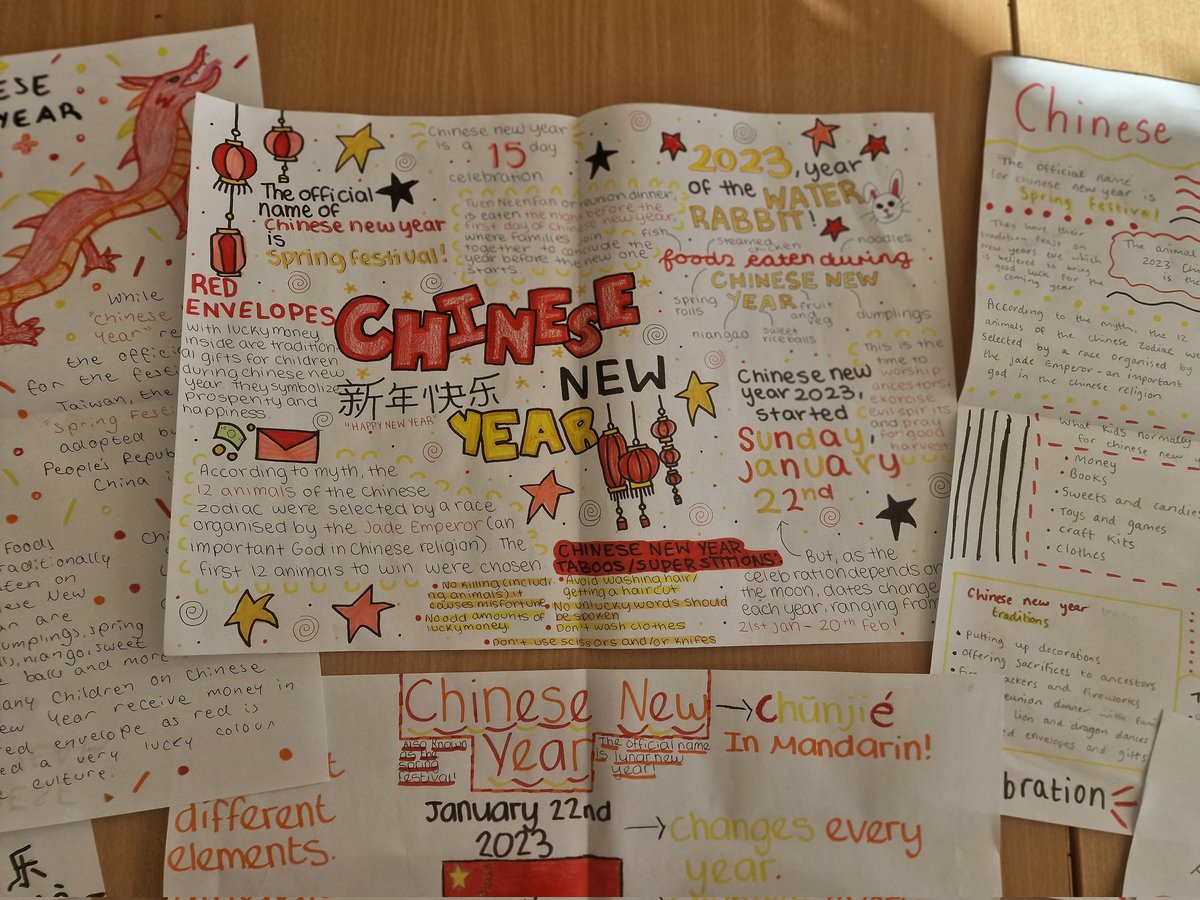 ESE
YEAR
While
"Chinese
Year" re
the offici
for the festi
Taiwan, the
"Spring Festi
adopted by
People's Republ
China i
Foods
raditionally
aten on
nese New
are
umplings, spring
niango, sweet
balls and more
any Children on Chinese
ew Year receive money in
red envelope as red is
ed a very lucky colour
culture.
The official
name of
Chinese new year
is
spring festival!
RED
ENVELOPES
with lucky money
inside are tradition
al gifts for children
during chinese new
year. They symbolize
prosperity and
happiness.
Chinese new year
is a 15 day
celebration
Tuen Neen Fan or reunion dinner,
is eaten the night before the
first day of Chinese new year,
where families join
together to conclude the
year before the new one
starts.
2023, year
of the WATER
RABBIT!
fish
steamed
chicken
noodles
foods eaten during
CHINESE NEW
YEAR
spring
rolls
niangao
sweet
rice balls
fruit
and
veg
dumplings
CHINESE
NEW
YEAR
新年快乐
"HAPPY NEW YEAR"
According to myth, the
12 animals of the Chinese
zodiac were selected by a race
organised by the Jade Emperor (an
important God in Chinese religion). The
first 12 animals to win were chosen.
Chinese new
year 2023,
started
Sunday,
January
22nd
This is the
time to
worship
ancestors,
exorcise
evil spirits
and pray
for good
harvest
But, as the
celebration depends on
the moon, dates change
each year, ranging from
21st Jan - 20th Feb!
CHINESE NEW YEAR
TABOOS/SUPERSTITIONS:
• No killing (includi
ng animals) it
causes misfortune
• No odd amounts of
lucky money
• Avoid washing hair/
getting a haircut
• No unlucky words should
be spoken
• Don't wash clothes
• Don't use scissors and/or knifes
Chinese
The official name
for chinese new year is
Spring Festival
They have their
tradition feast on
New years eve which
is believed to bring
good luck for the
coming year
The animal
2023 Chi
is the
According to the myth, the 12
animals of the Chinese zodiac we
selected by a race organised by
the Jade Emperor - an important
god in the chinese religion
What kids normally
for chinese new y
• Money
• Books
• Sweets and candies
• Toys and games
• Craft Kits
• Clothes
Chinese new year
traditions
• Putting up decorations
• Offering sacrifices to ancestors
ackers and fireworks
eunion dinner with fami
lion and dragon dances
ed envelopes and gifts
bration
Chinese New
Year
Also known
as the
spring
festival!
The official name
is lunar new
year!
Chūnjié
In Mandarin!
January 22nd
2023
changes every
year.
different
elements.
乐